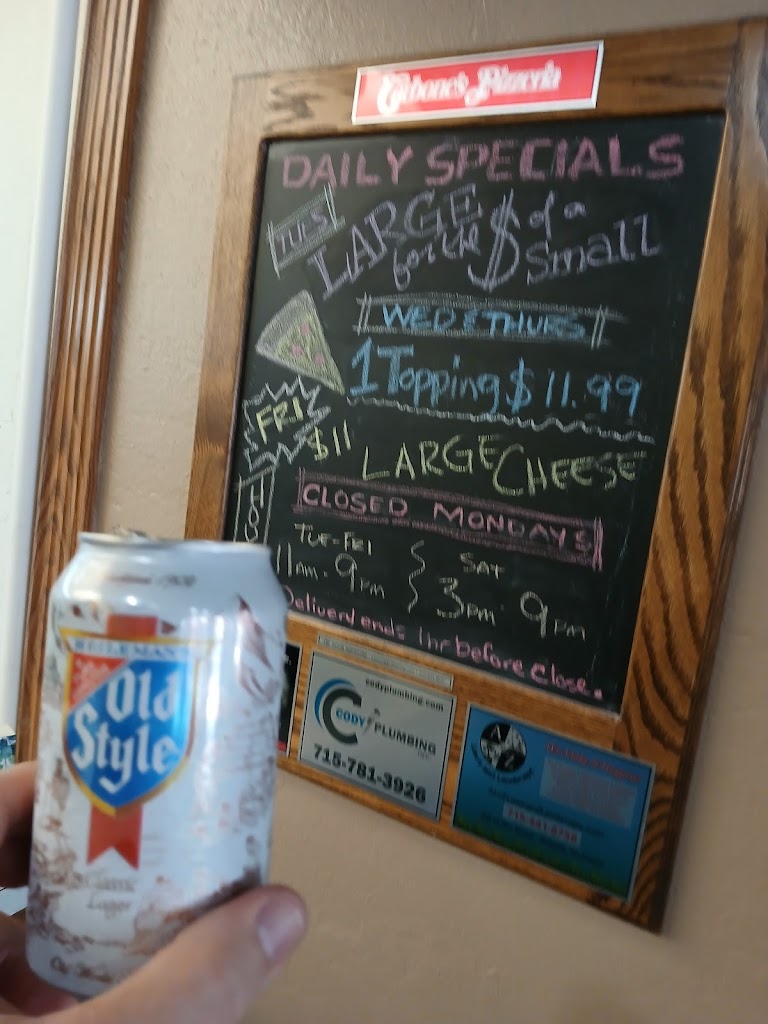 Carbone's Pizzeria
DAILY SPECIALS
TUES
LARGE
for the $ of a
small
WED & THURS
1 Topping $11.99
FRI
$11
LARGE CHEESE
CLOSED MONDAYS
TUE-FRI
11AM-9PM
SAT
3PM-9PM
Delivery ends 1hr before close.
codyplumbing.com
CODY PLUMBING
715-781-3926
A
Z
HEILEMAN'S
Old
Style
Classic
Lager